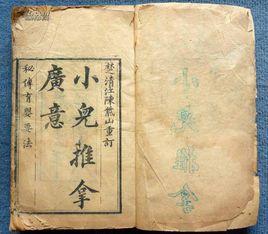 楚清江陳熊山重訂
小兒推拿
廣意
秘傳育嬰要法
小兒推拿